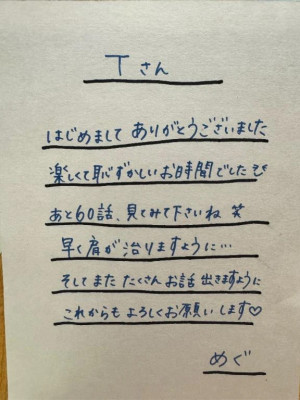 Tさん
はじめまして ありがとうございました
楽しくて恥ずかしいお時間でした
あと60話、見てみて下さいね 笑
早く肩が治りますように…
そして また たくさん お話 出きますように
これからも よろしくお願いします♡
めぐ